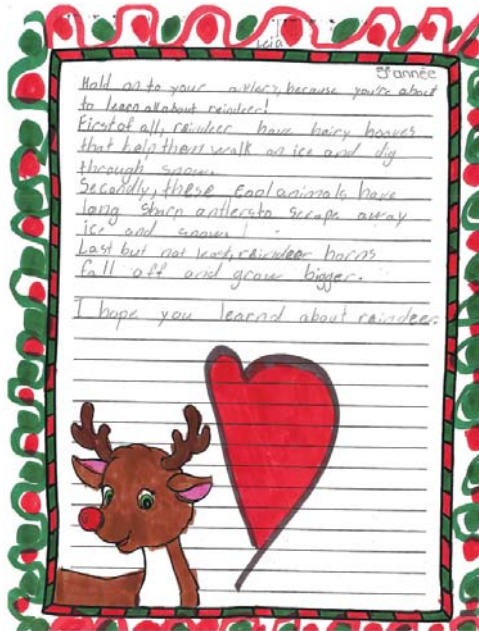 Leia
3e année
Hold on to your antlers, because you're about
to learn all about reindeer!
First of all, reindeer have hairy hooves
that help them walk on ice and dig
through snow.
Secondly, these cool animals have
long sharp antlers to scrape away
ice and snow!
Last but not least, reirndeer horns
fall off and grow bigger.
I hope you learnd about reindeer.